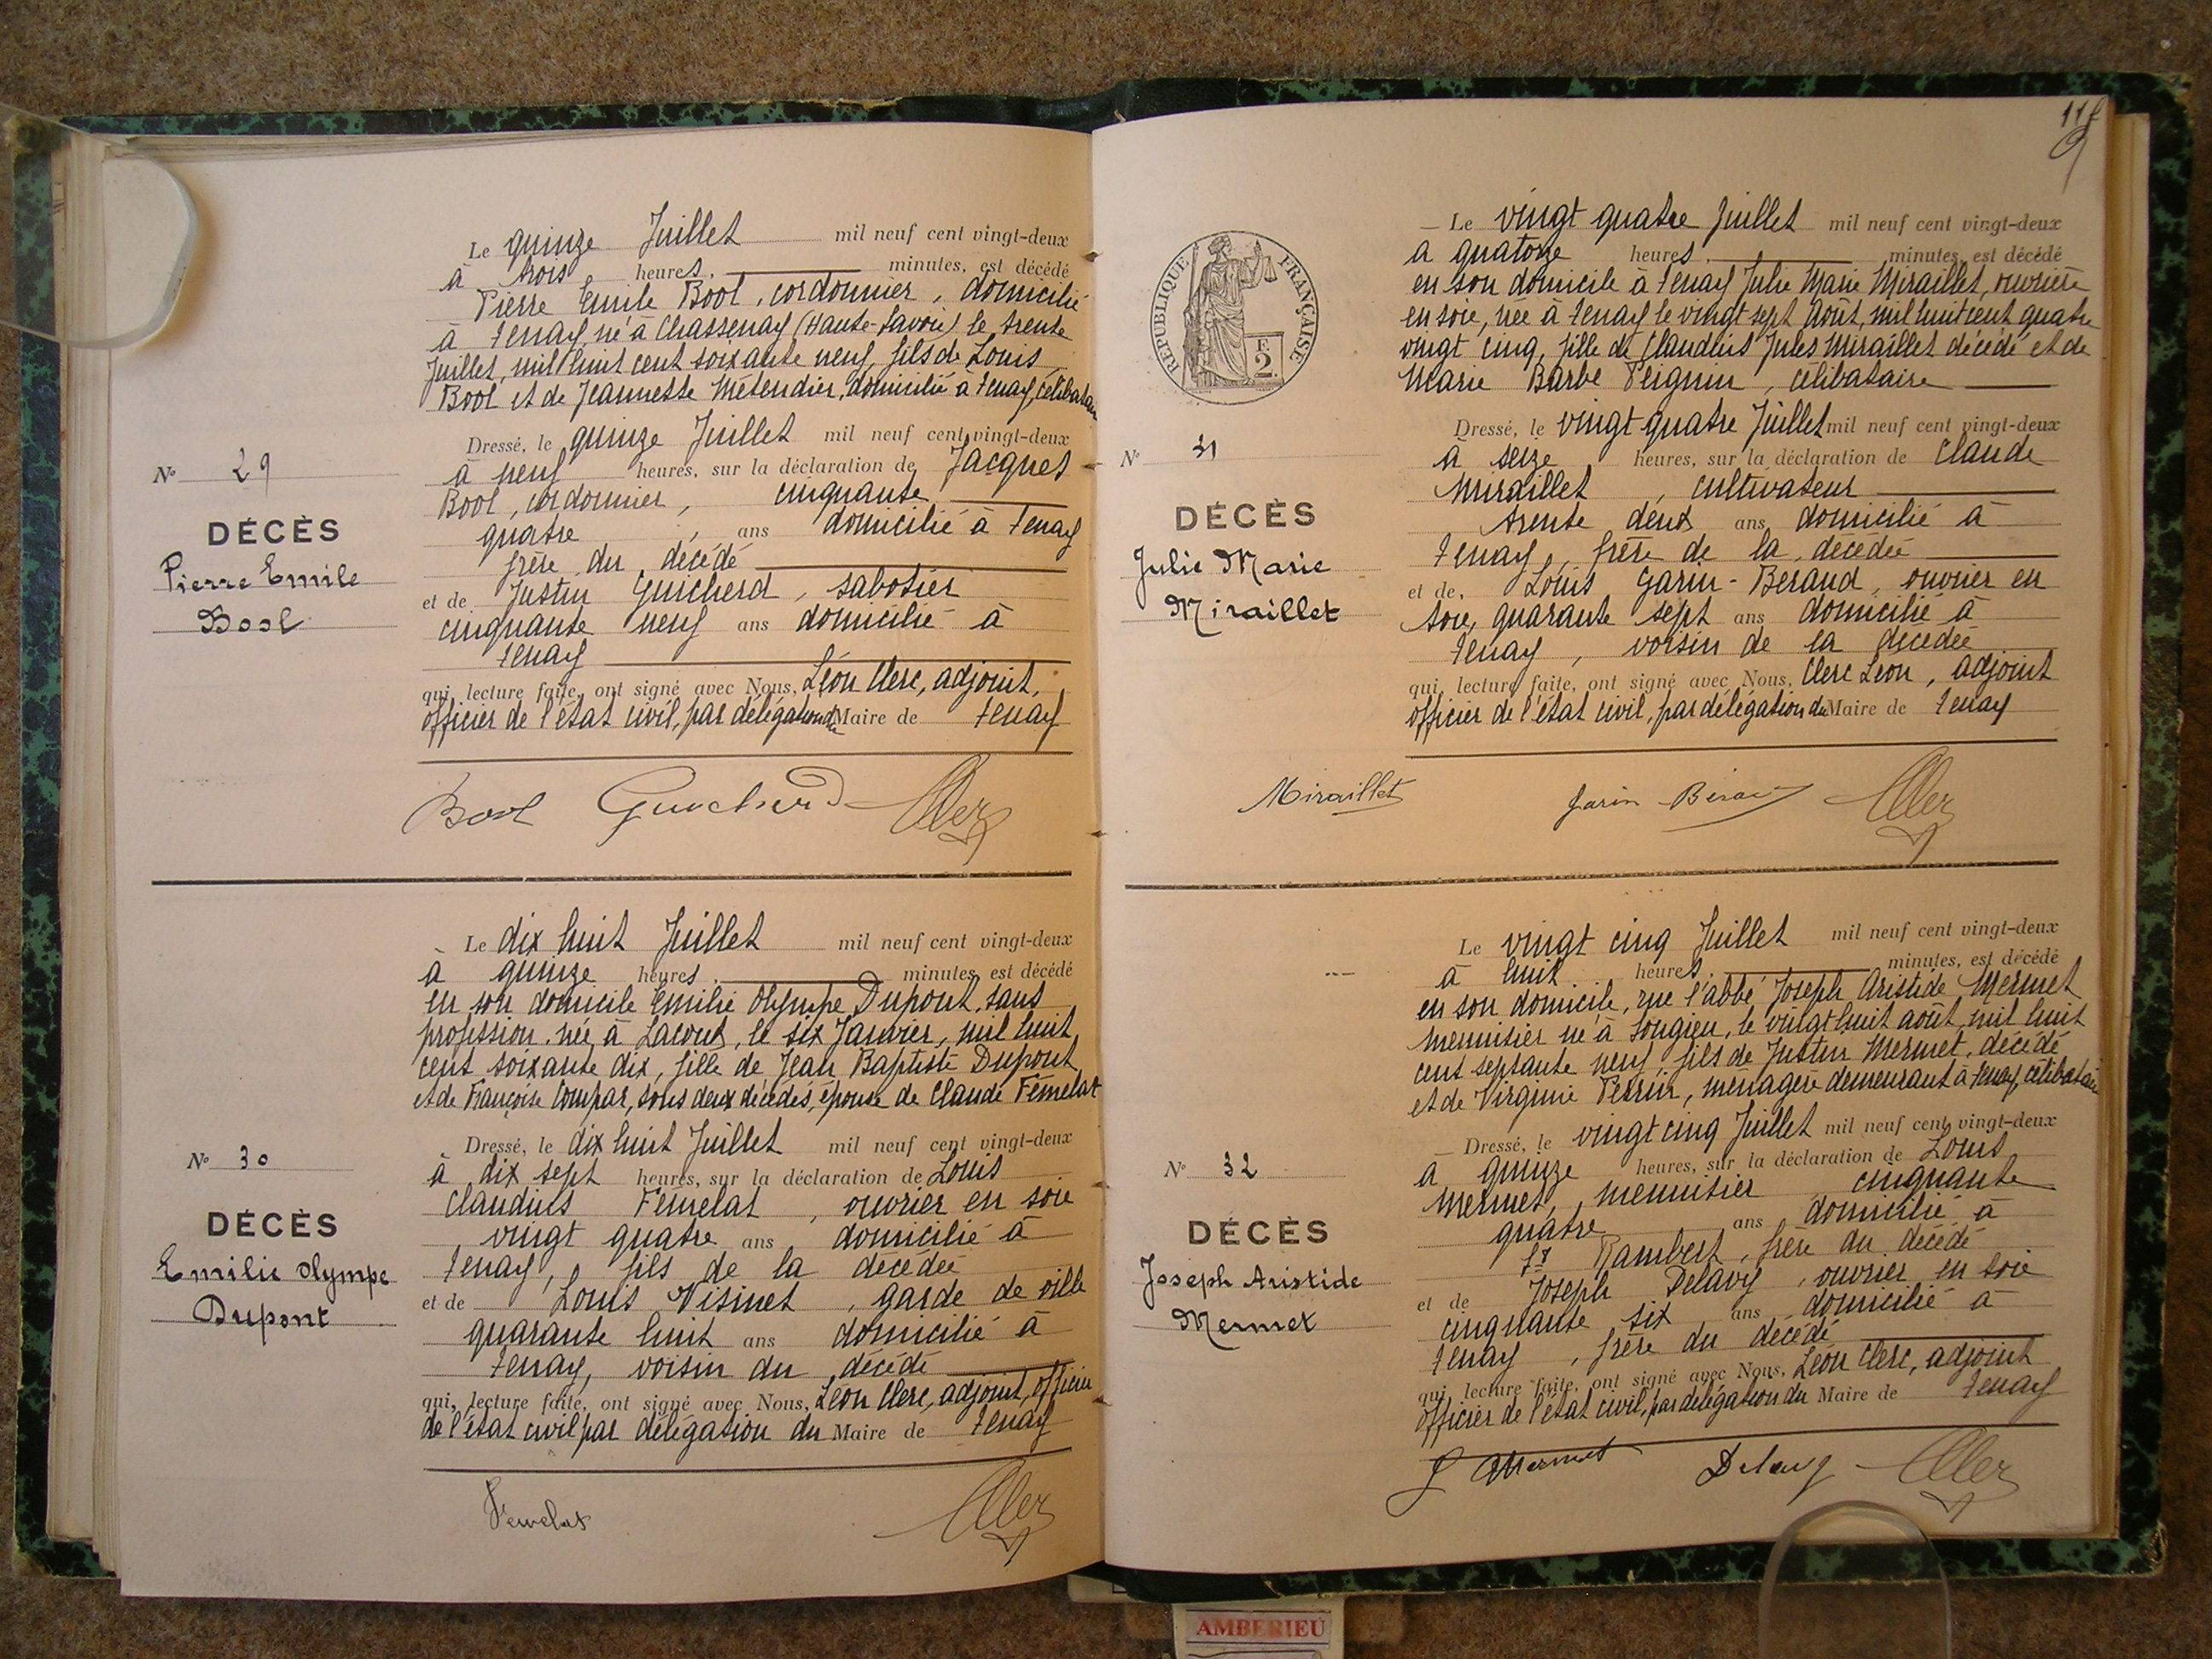 Le quinze Juillet mil neuf cent vingt-deux
à trois heures, minutes, est décédé
Pierre Emile Bool, cordonnier, domicilié
à Tenay, né à Chassenay (Haute-Savoie) le trente
Juillet, mil huit cent soixante neuf, fils de Louis
Bool et de Jeannette Métendier, domicilié à Tenay, célibataire
Dressé, le quinze Juillet mil neuf cent vingt-deux
à neuf heures, sur la déclaration de Jacques
Bool, cordonnier, cinquante
quatre ans domicilié à Tenay
frère du décédé
et de Justin Guicherd, sabotier
cinquante neuf ans domicilié à
Tenay
qui, lecture faite, ont signé avec Nous, Léon Clerc, adjoint,
officier de l'état civil, par délégation du Maire de Tenay
Bool Guicherd Clerc
N° 29
DÉCÈS
Pierre Emile
Bool
Le dix huit Juillet mil neuf cent vingt-deux
à quinze heures, minutes, est décédé
en son domicile Emilie Olympe Dupont, sans
profession, née à Lacoux, le six Janvier, mil huit
cent soixante dix, fille de Jean Baptiste Dupont
et de Françoise Compar, tous deux décédés, épouse de Claude Fémelat
Dressé, le dix huit Juillet mil neuf cent vingt-deux
à dix sept heures, sur la déclaration de Louis
Claudius Fémelat, ouvrier en soie
vingt quatre ans domicilié à
Tenay, fils de la décédée
et de Louis Visinet, garde de ville
quarante huit ans domicilié à
Tenay, voisin du décédé
qui, lecture faite, ont signé avec Nous, Léon Clerc, adjoint, officier
de l'état civil par délégation du Maire de Tenay
Fémelat Clerc
N° 30
DÉCÈS
Emilie Olympe
Dupont
RÉPUBLIQUE FRANÇAISE
F.
2.
Le vingt quatre Juillet mil neuf cent vingt-deux
à quatorze heures, minutes, est décédé
en son domicile à Tenay Julie Marie Miraillet, ouvrière
en soie, née à Tenay le vingt sept Août, mil huit cent quatre
vingt cinq, fille de Claudius Jules Miraillet décédé et de
Marie Barbe Peignin, célibataire
Dressé, le vingt quatre Juillet mil neuf cent vingt-deux
à seize heures, sur la déclaration de Claude
Miraillet, cultivateur
trente deux ans domicilié à
Tenay, frère de la décédée
et de, Louis Garin-Beraud, ouvrier en
soie, quarante sept ans domicilié à
Tenay, voisin de la décédée
qui, lecture faite, ont signé avec Nous, Clerc Léon, adjoint
officier de l'état civil, par délégation du Maire de Tenay
Miraillet Garin-Beraud Clerc
N° 31
DÉCÈS
Julie Marie
Miraillet
Le vingt cinq Juillet mil neuf cent vingt-deux
à huit heures, minutes, est décédé
en son domicile, rue l'abbé Joseph Aristide Mermet
menuisier né à Songieu, le vingt huit août, mil huit
cent septante neuf, fils de Justin Mermet, décédé
et de Virginie Perrin, ménagère demeurant à Tenay, célibataire
Dressé, le vingt cinq Juillet mil neuf cent vingt-deux
à quinze heures, sur la déclaration de Louis
Mermet, menuisier cinquante
quatre ans domicilié à
St Rambert, frère du décédé
et de Joseph Delavy, ouvrier en soie
cinquante six ans domicilié à
Tenay, frère du décédé
qui, lecture faite, ont signé avec Nous, Léon Clerc, adjoint
officier de l'état civil, par délégation du Maire de Tenay
L Mermet Delavy Clerc
N° 32
DÉCÈS
Joseph Aristide
Mermet
AMBERIEU